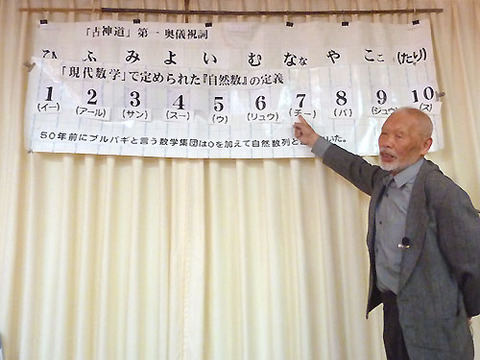 「古神道」第一奥儀祝詞
ふ み よ い む な や こ (たり)
「現代数学」で定められた『自然数』の定義
1 2 3 4 5 6 7 8 9 10
(イー) (アール) (サン) (スー) (ウ) (リュウ) (チー) (パ) (ジュウ) (ス)
50年前にブルバギと言う数学集団は0を加えて自然数列と いた。